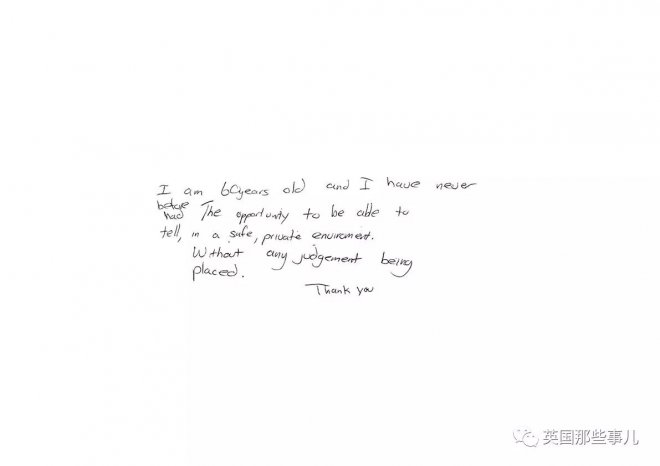 I am 60years old and I have never
before had The opportunity to be able to
tell, in a safe, private enviroment.
Without any judgement being
placed.
Thank you
英国那些事儿